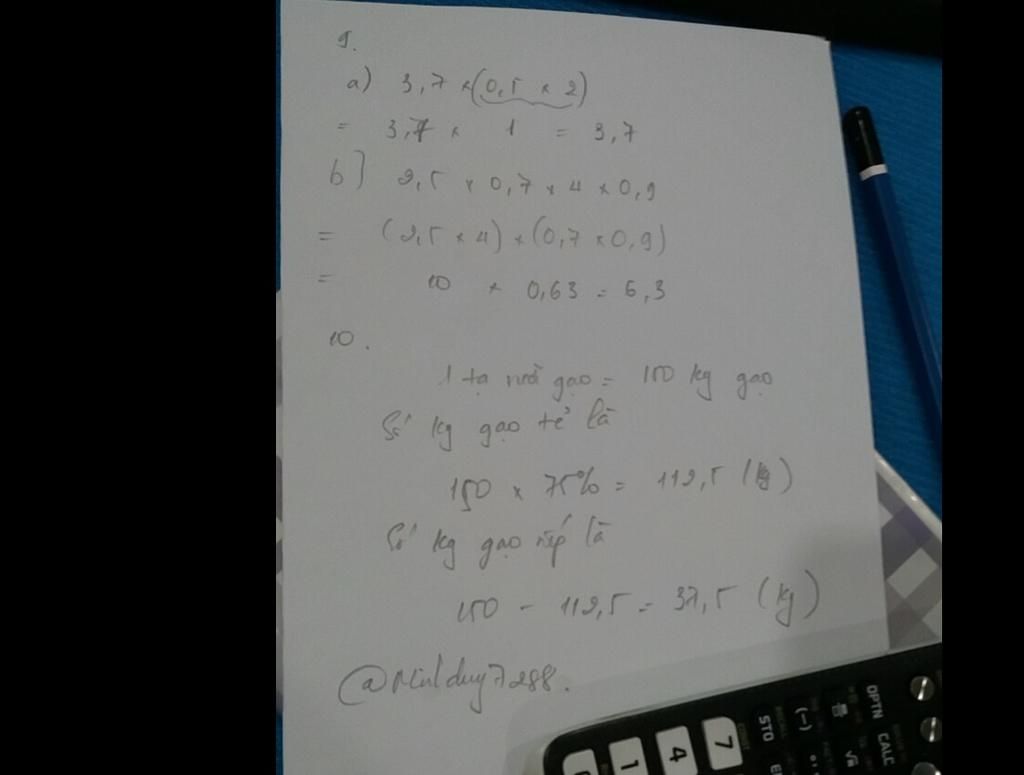 9.
a) 3,7 × (0,5 × 2)
= 3,7 × 1 = 3,7
b) 2,5 × 0,7 × 4 × 0,9
= (2,5 × 4) × (0,7 × 0,9)
= 10 × 0,63 = 6,3
10.
1 tạ rưỡi gạo = 150 kg gạo
Số kg gạo tẻ là
150 × 75% = 112,5 (kg)
Số kg gạo nếp là
150 - 112,5 = 37,5 (kg)
@Minhduy7288.
OPTN CALC
STO (-) √
7 4 1